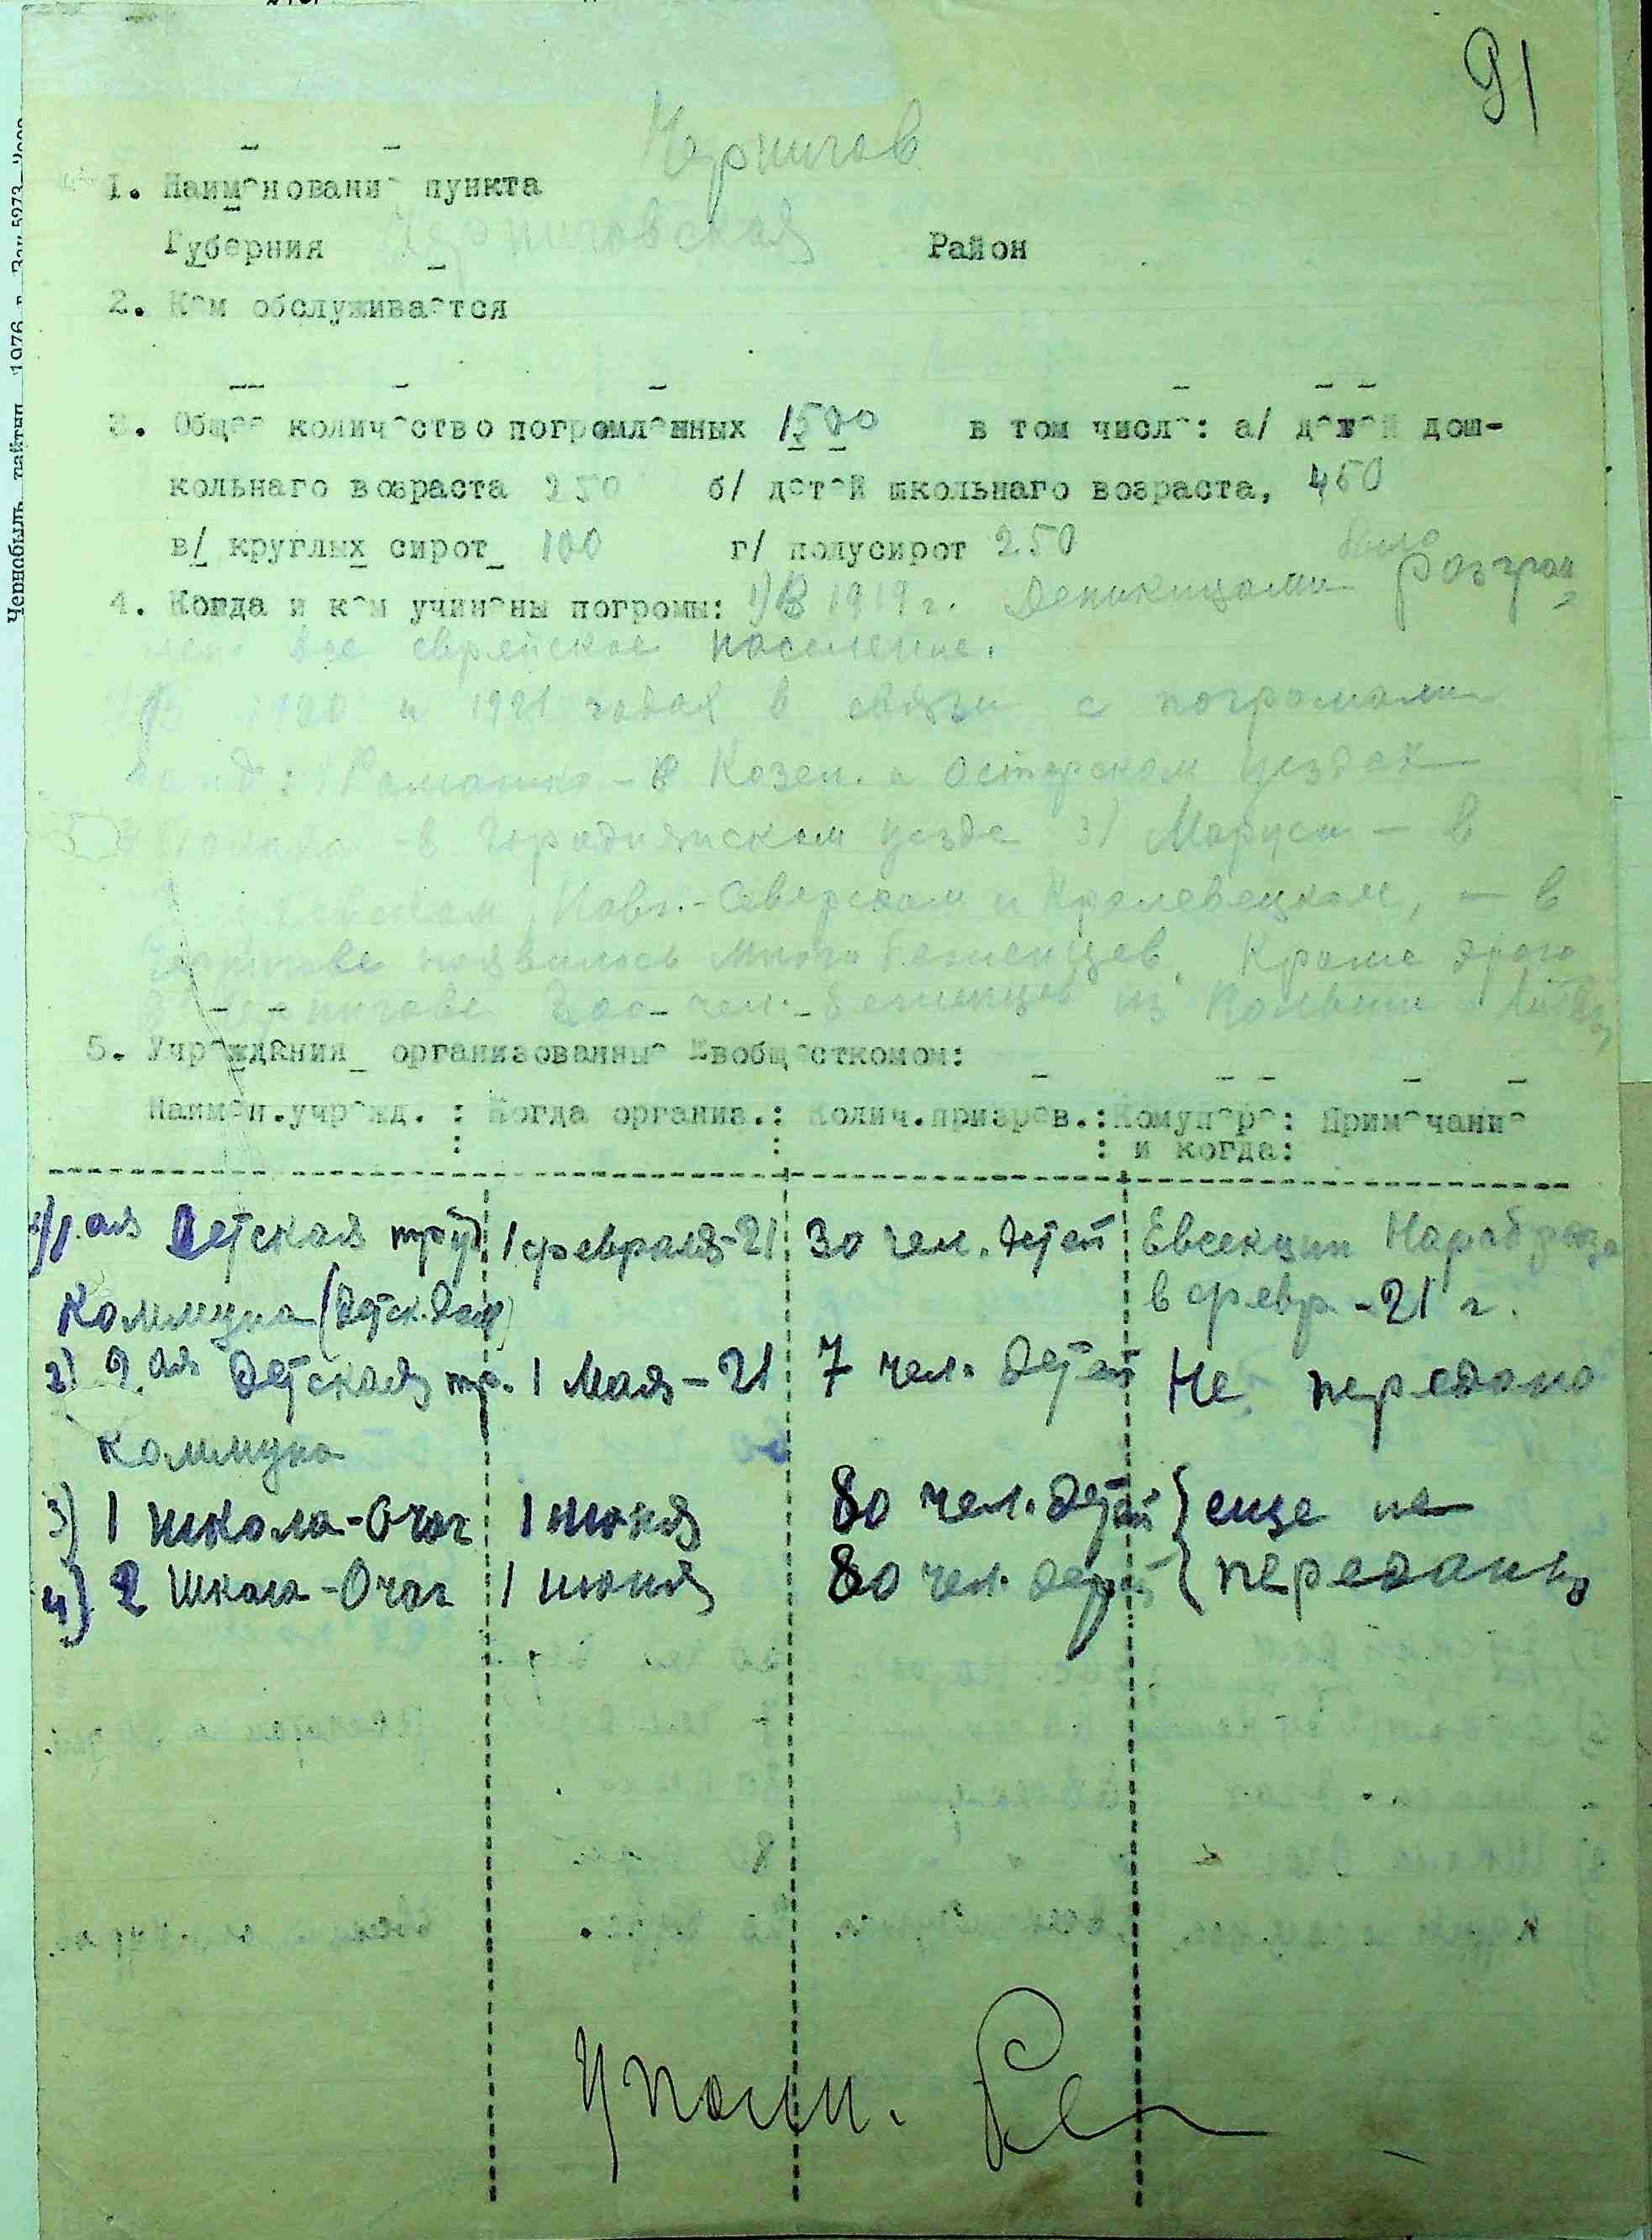 91
Чернигов
1. Наименование пункта
Губерния Черниговская Район
2. Кем обслуживается
3. Общее количество погромленных 1500 в том числе: а/ детей дош-
кольнаго возраста 250 б/ детей школьнаго возраста, 450
в/ круглых сирот 100 г/ полусирот 250
было
4. Когда и кем учинены погромы: 1) В 1919 г. Деникицами розгром
лено все еврейское население.
В 1920 и 1921 годах в связи с погромами
банд: - в Козел. и Остерском уездах
- в Городнянском уезде 3/ Маруси - в
Новг.-Северском и Кролевецком, - в
Чернигове появилось много беженцев. Кроме этого
в Чернигове чел. беженцев из Польши и Литвы
5. Учреждения организованные Евобщесткомом:
Наимен.учрежд. : Когда организ.: Колич.призрев.: Кому пере: Примечание
: : : и когда:
1) 1 ая Детская труд. 1 февраля-21 30 чел. детей Евсекции Наробраза
коммуна (Детск. дом) в февр. -21 г.
2) 2 ая Детская тр. 1 Мая - 21 7 чел. детей Не передано
Коммуна
3) 1 школа-Очаг 1 июня 80 чел. детей } еще не
4) 2 Школа-Очаг 1 июня 80 чел. детей } переданы
Уполн.